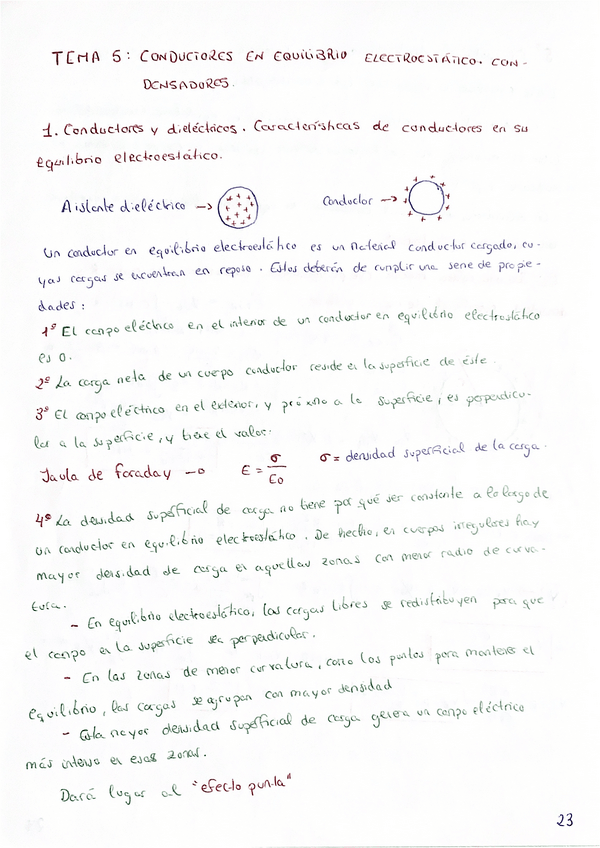 TEMA 5: CONDUCTORES EN EQUILIBRIO ELECTROESTÁTICO. CON-
DENSADORES.
1. Conductores y dieléctricos. Características de conductores en su
equilibrio electroestático.
Aislante dieléctrico → Conductor →
Un conductor en equilibrio electroestático es un material conductor cargado, cu-
yas cargas se encuentran en reposo. Estos deberán de cumplir una serie de propie-
dades:
1º El campo eléctrico en el interior de un conductor en equilibrio electrostático
es 0.
2º La carga neta de un cuerpo conductor reside en la superficie de éste.
3º El campo eléctrico en el exterior, y próximo a la superficie, es perpendicu-
lar a la superficie, y tiene el valor:
Jaula de faraday → E = σ/εo σ = densidad superficial de la carga.
4º La densidad superficial de carga no tiene por qué ser constante a lo largo de
un conductor en equilibrio electroestático. De hecho, en cuerpos irregulares hay
mayor densidad de carga en aquellas zonas con menor radio de curva-
tura.
- En equilibrio electroestático, las cargas libres se redistribuyen para que
el campo en la superficie sea perpendicular.
- En las zonas de menor curvatura, como las puntas para mantener el
equilibrio, las cargas se agrupan con mayor densidad
- Esta mayor densidad superficial de carga genera un campo eléctrico
más intenso en esas zonas.
Dará lugar al "efecto punta"
23